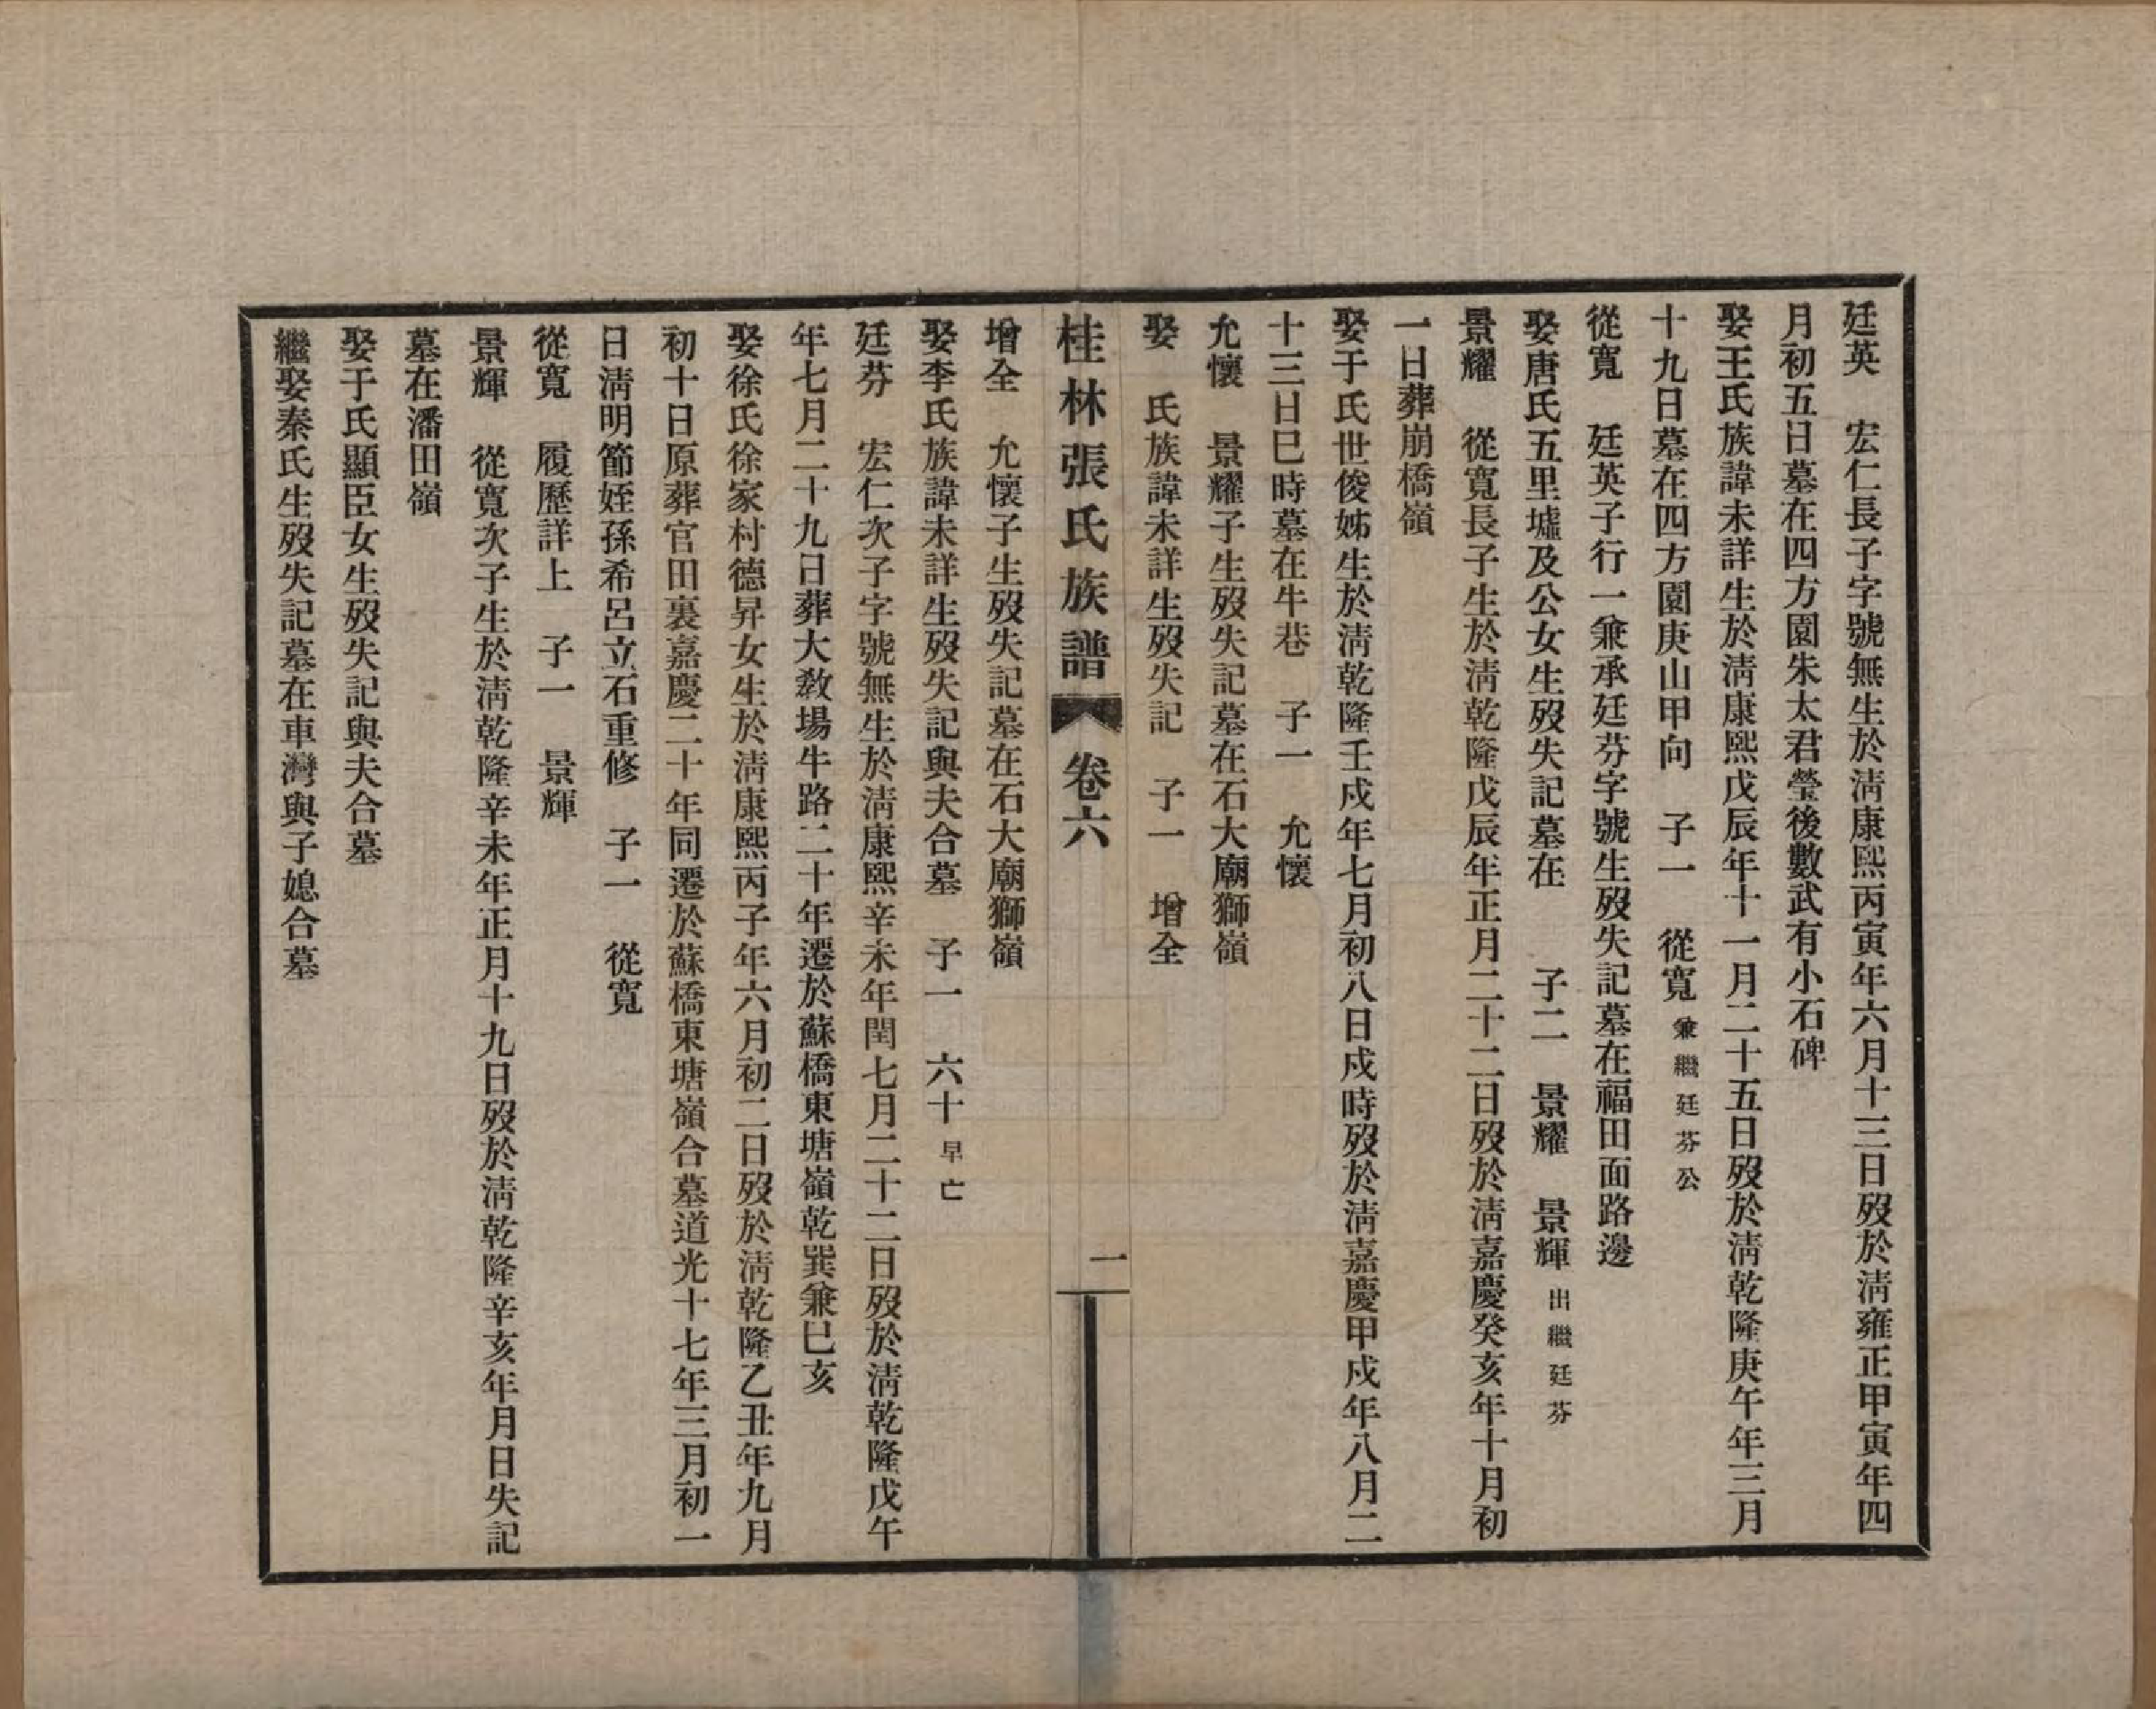 廷英　宏仁長子字號無生於清康熙丙寅年六月十三日歿於清雍正甲寅年四
月初五日墓在四方園朱太君塋後數武有小石碑
娶王氏族諱未詳生於清康熙戊辰年十一月二十五日歿於清乾隆庚午年三月
十九日墓在四方園庚山甲向　子一　從寬兼繼廷芬公
從寬　廷英子行一兼承廷芬字號生歿失記墓在福田面路邊
娶唐氏五里墟及公女生歿失記墓在　　子二　景耀　景輝出繼廷芬
景耀　從寬長子生於清乾隆戊辰年正月二十二日歿於清嘉慶癸亥年十月初
一日葬崩橋嶺
娶于氏世俊姊生於清乾隆壬戌年七月初八日戌時歿於清嘉慶甲戌年八月二
十三日巳時墓在牛巷　子一　允懷
允懷　景耀子生歿失記墓在石大廟獅嶺
娶　氏族諱未詳生歿失記　子一　增全
桂林張氏族譜　卷六　一
增全　允懷子生歿失記墓在石大廟獅嶺
娶李氏族諱未詳生歿失記與夫合墓　子一　六十早亡
廷芬　宏仁次子字號無生於清康熙辛未年閏七月二十二日歿於清乾隆戊午
年七月二十九日葬大教場牛路二十年遷於蘇橋東塘嶺乾巽兼巳亥
娶徐氏徐家村德昇女生於清康熙丙子年六月初二日歿於清乾隆乙丑年九月
初十日原葬官田裏嘉慶二十年同遷於蘇橋東塘嶺合墓道光十七年三月初一
日清明節姪孫希呂立石重修　子一　從寬
從寬　履歷詳上　子一　景輝
景輝　從寬次子生於清乾隆辛未年正月十九日歿於清乾隆辛亥年月日失記
墓在潘田嶺
娶于氏顯臣女生歿失記與夫合墓
繼娶秦氏生歿失記墓在車灣與子媳合墓